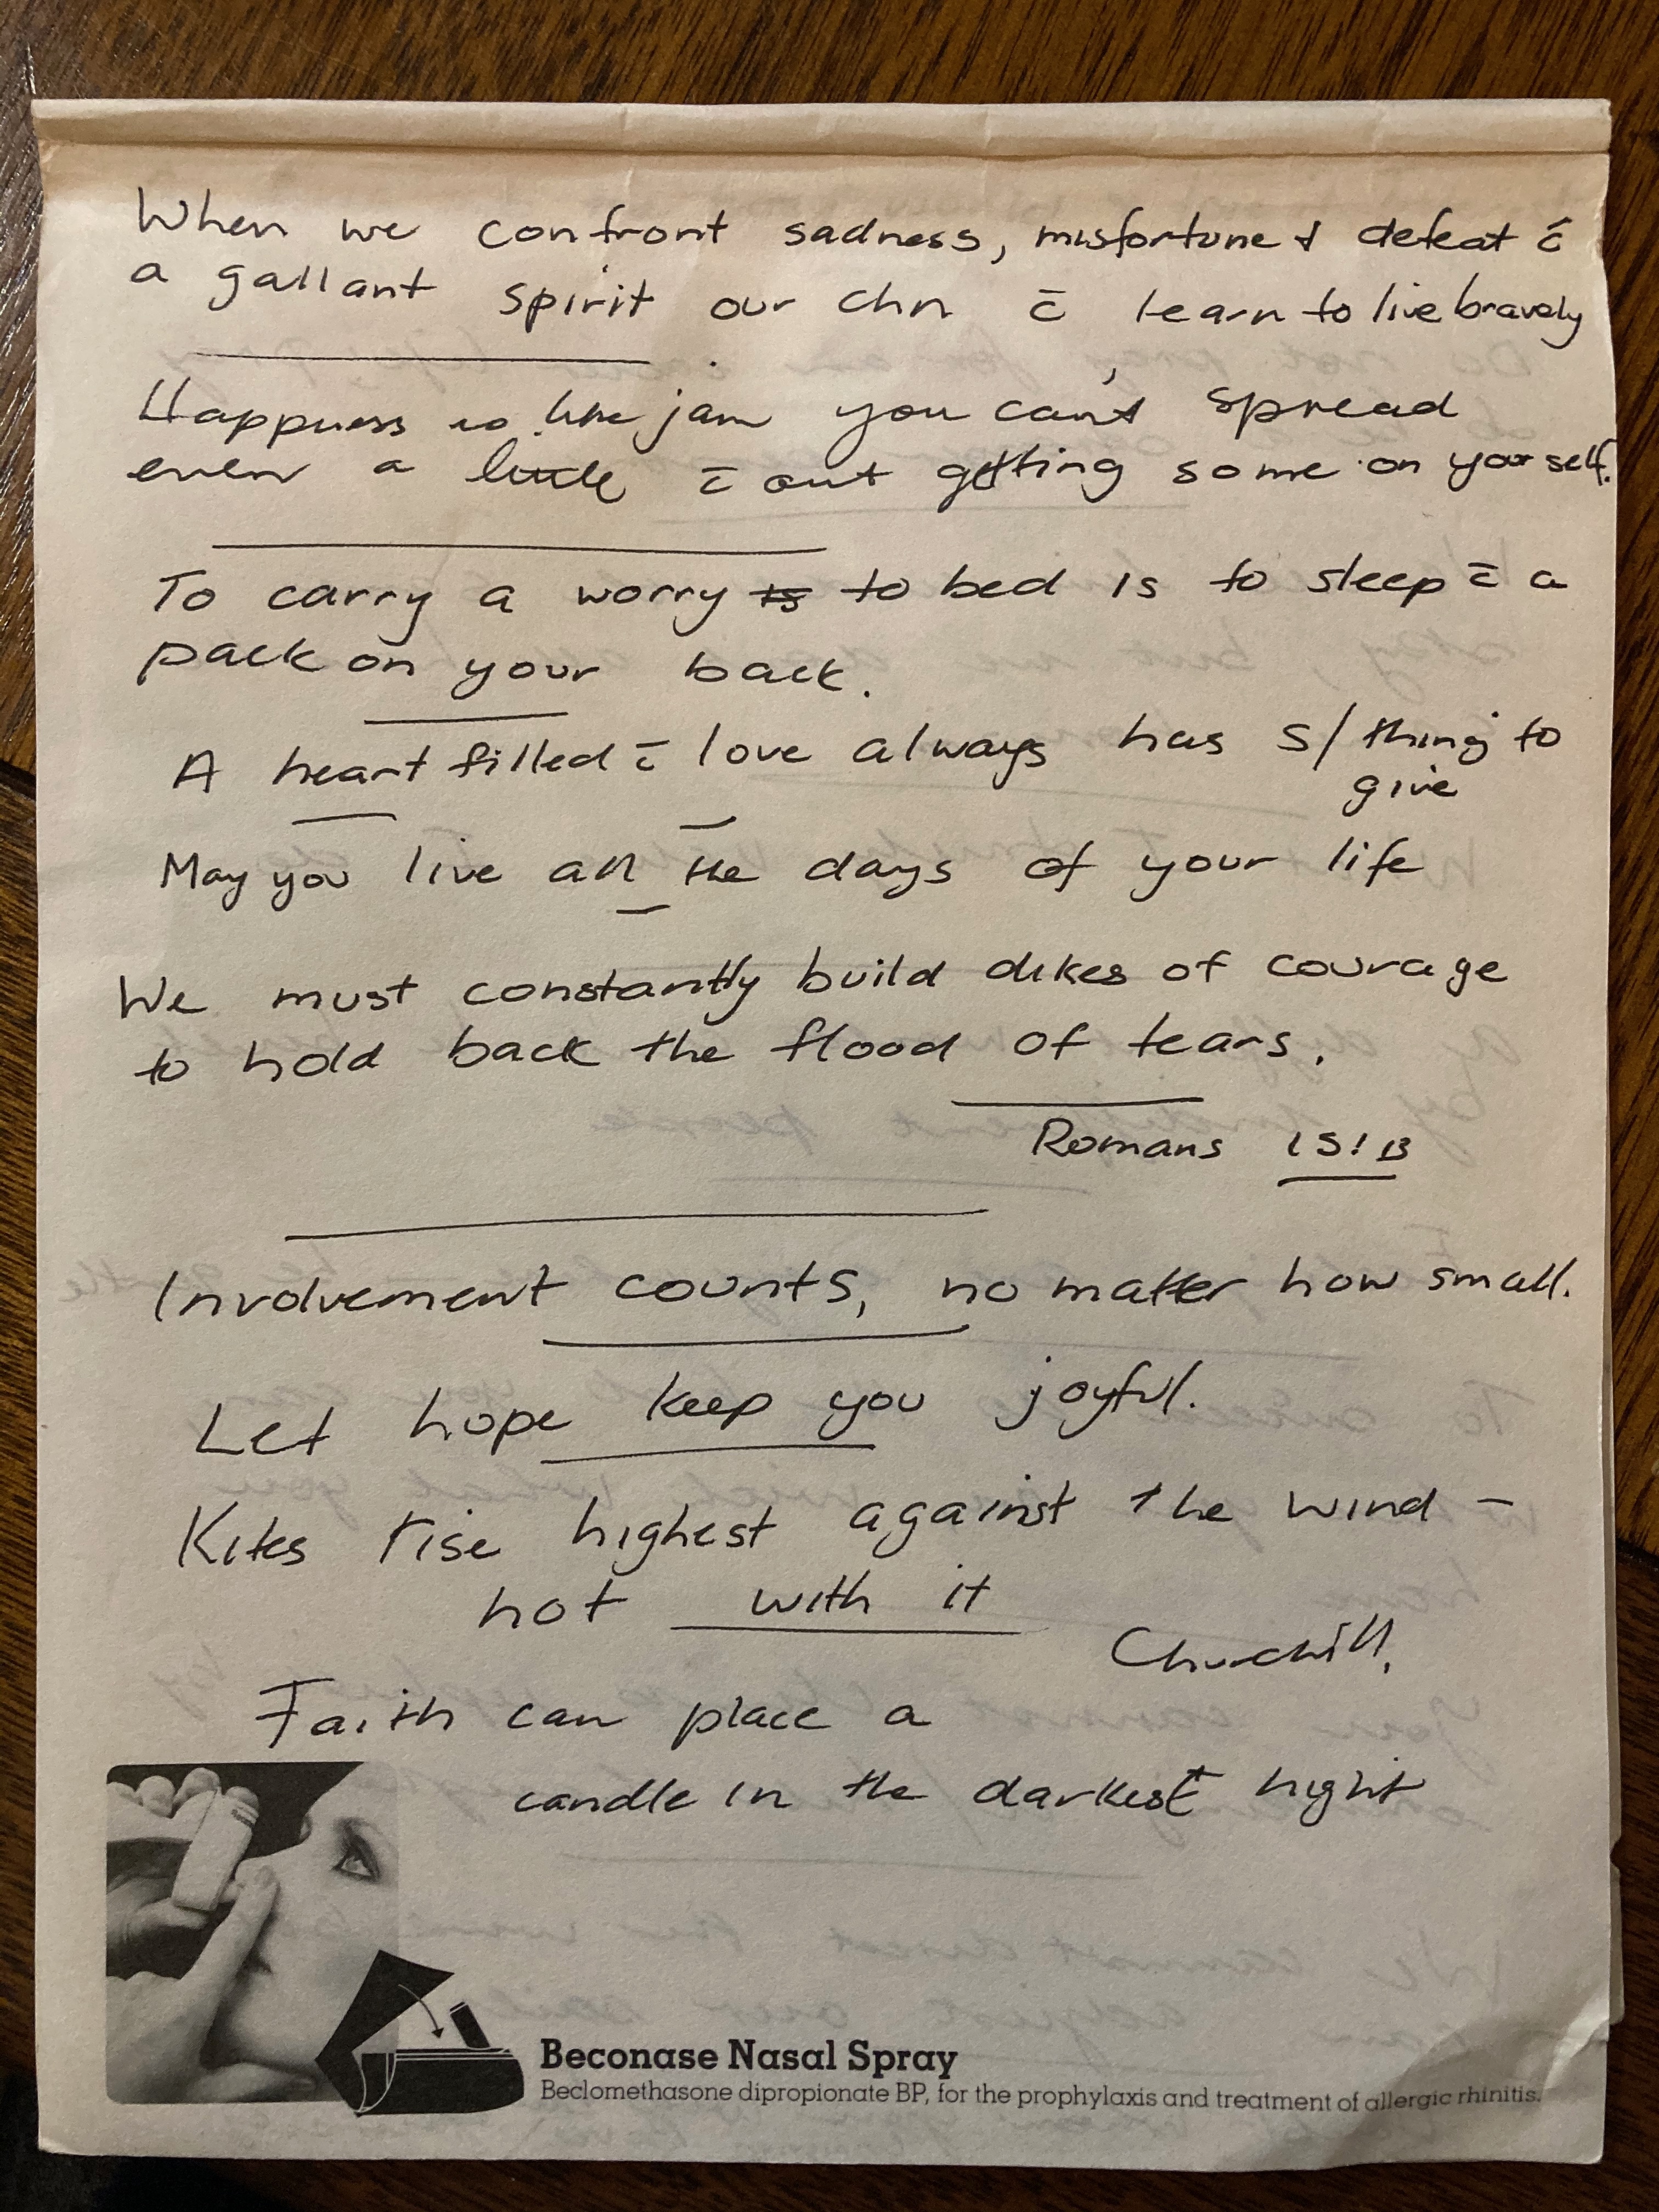 When we confront sadness, misfortune & defeat c̄
a gallant spirit our chn c̄ learn to live bravely
Happiness is like jam you can't spread
even a little c̄out getting some on yourself.
To carry a worry is to bed is to sleep c̄ a
pack on your back.
A heart filled c̄ love always has s/thing to
give
May you live all the days of your life
We must constantly build dikes of courage
to hold back the flood of tears.
Romans 15:13
Involvement counts, no matter how small.
Let hope keep you joyful.
Kites rise highest against the wind -
not with it
Churchill.
Faith can place a
candle in the darkest night
Beconase Nasal Spray
Beclomethasone dipropionate BP, for the prophylaxis and treatment of allergic rhinitis.